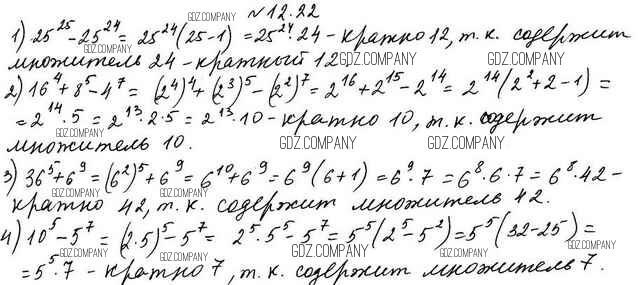 №12.22
1) 25²⁵-25²⁴= 25²⁴(25-1) =25²⁴·24-кратно 12, т.к. содержит
множитель 24-кратный 12
2) 16⁴+8⁵-4⁷= (2⁴)⁴+(2³)⁵-(2²)⁷=2¹⁶+2¹⁵-2¹⁴= 2¹⁴(2²+2-1)=
=2¹⁴·5=2¹³·2·5=2¹³·10-кратно 10, т.к. содержит
множитель 10.
3) 36⁵+6⁹=(6²)⁵+6⁹=6¹⁰+6⁹=6⁹(6+1)=6⁹·7=6⁸·6·7=6⁸·42-
кратно 42, т.к. содержит множитель 42.
4) 10⁵-5⁷=(2·5)⁵-5⁷= 2⁵·5⁵-5⁷=5⁵(2⁵-5²)=5⁵(32-25)=
=5⁵·7 - кратно 7, т.к. содержит множитель 7.
GDZ.COMPANY
GDZ.COMPANY
GDZ.COMPANY
GDZ.COMPANY
GDZ.COMPANY
GDZ.COMPANY
GDZ.COMPANY
GDZ.COMPANY
GDZ.COMPANY
GDZ.COMPANY
GDZ.COMPANY
GDZ.COMPANY